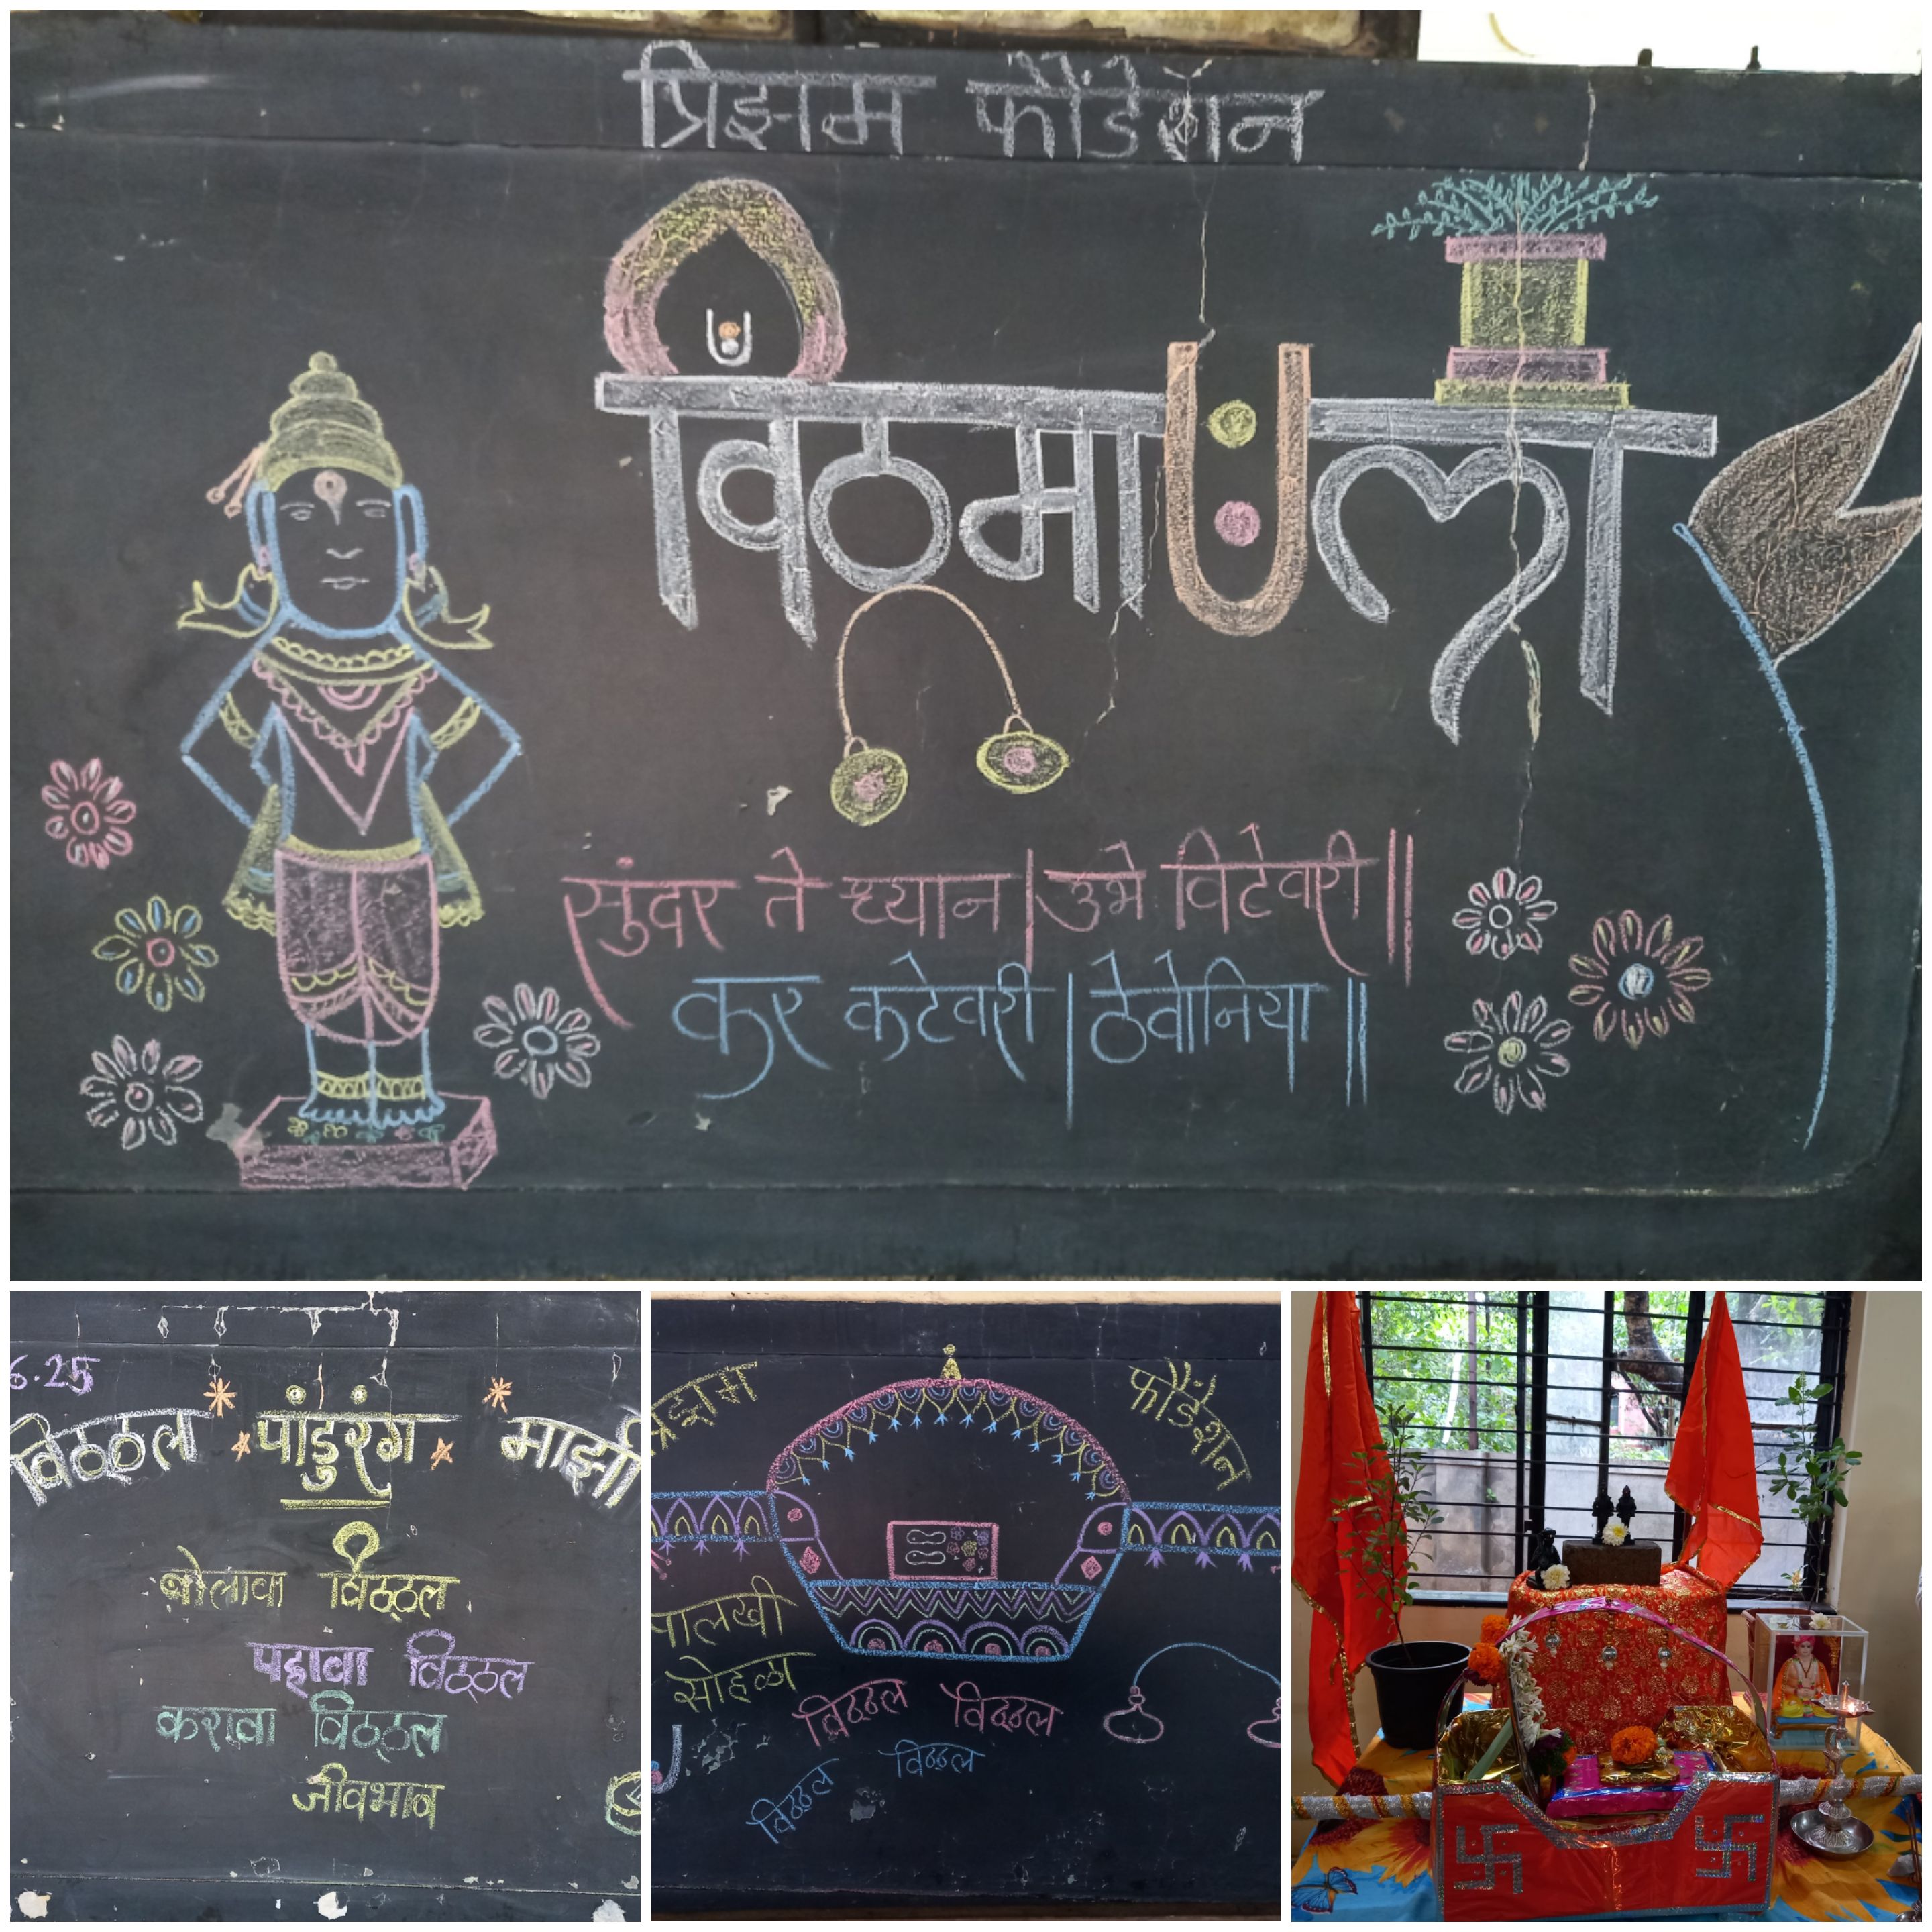 प्रिझम फौंडेशन
विठमाउली
सुंदर ते ध्यान | उभे विटेवरी ||
कर कटेवरी | ठेवोनिया ||
6.25
विठ्ठल पांडुरंग माझी
बोलावा विठ्ठल
पहावा विठ्ठल
करावा विठ्ठल
जीवभाव
फौंडेशन
पालखी
सोहळा
विठ्ठल विठ्ठल
विठ्ठल विठ्ठल